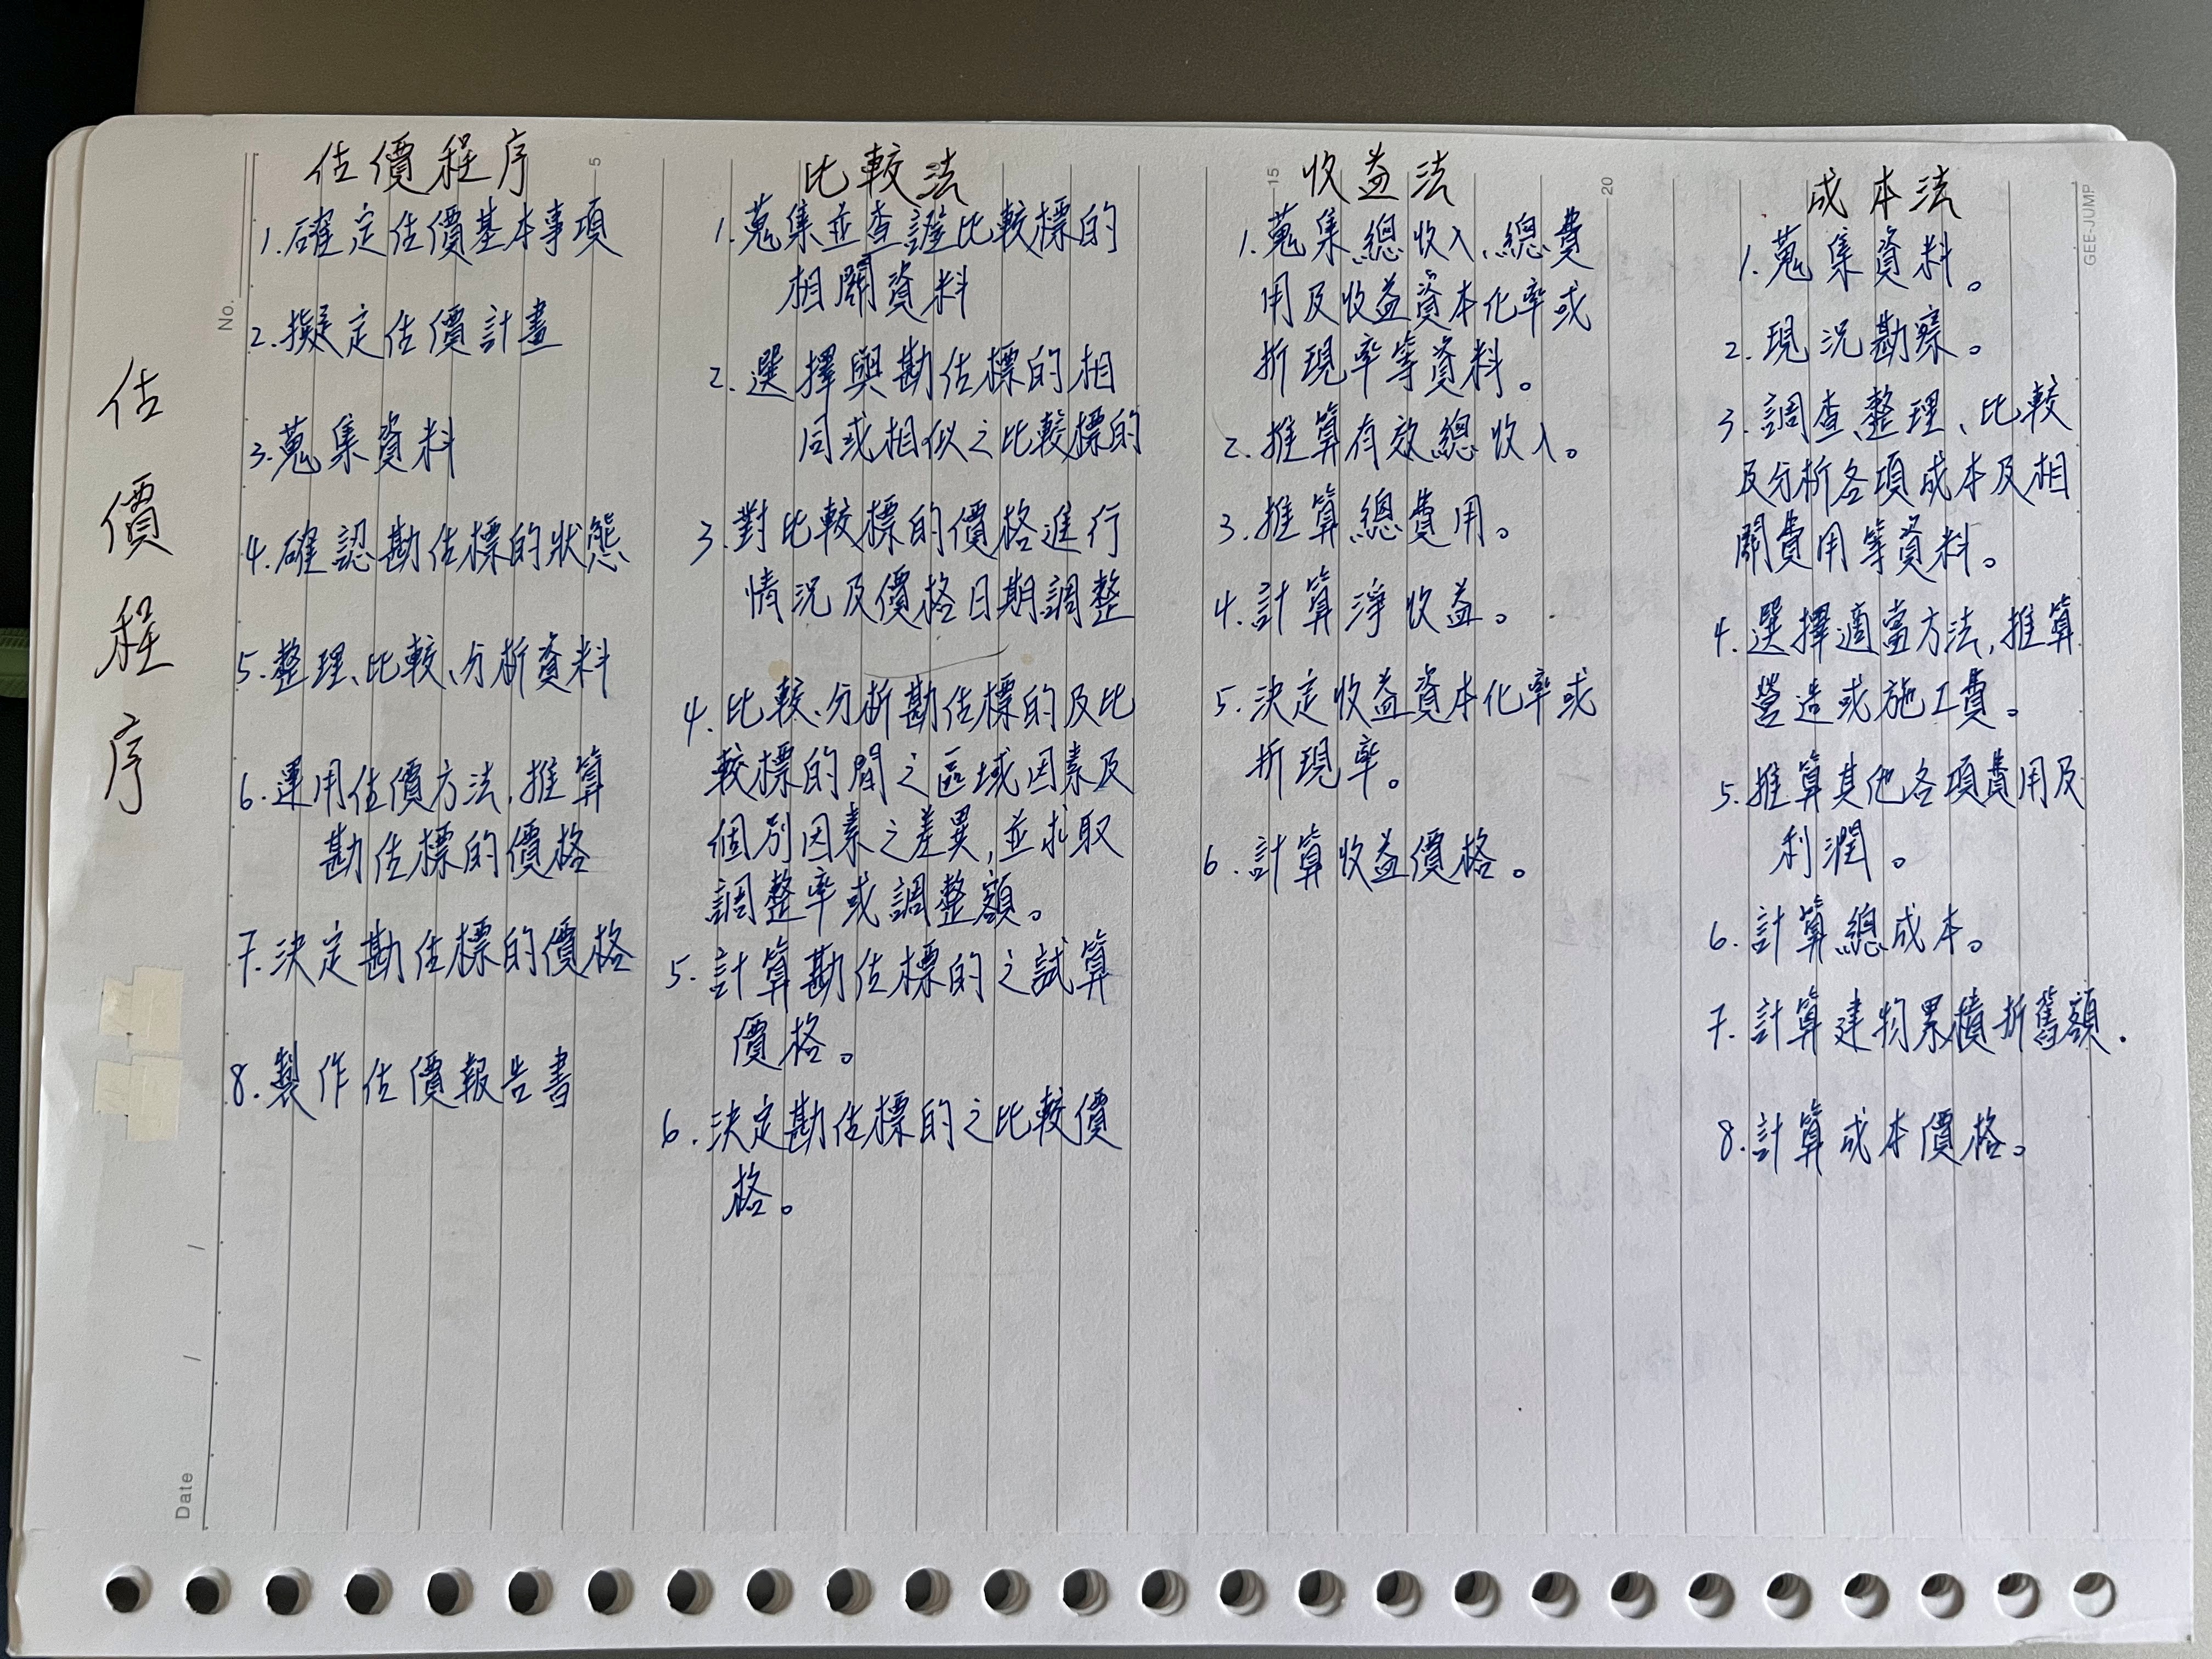 估價程序
估價程序
1.確定估價基本事項
2.擬定估價計畫
3.蒐集資料
4.確認勘估標的狀態
5.整理、比較、分析資料
6.運用估價方法,推算
勘估標的價格
7.決定勘估標的價格
8.製作估價報告書
比較法
1.蒐集並查證比較標的
相關資料
2.選擇與勘估標的相
同或相似之比較標的
3.對比較標的價格進行
情況及價格日期調整
4.比較、分析勘估標的及比
較標的間之區域因素及
個別因素之差異,並求取
調整率或調整額。
5.計算勘估標的之試算
價格。
6.決定勘估標的之比較價
格。
收益法
1.蒐集總收入、總費
用及收益資本化率或
折現率等資料。
2.推算有效總收入。
3.推算總費用。
4.計算淨收益。
5.決定收益資本化率或
折現率。
6.計算收益價格。
成本法
1.蒐集資料。
2.現況勘察。
3.調查、整理、比較
及分析各項成本及相
關費用等資料。
4.選擇適當方法,推算
營造或施工費。
5.推算其他各項費用及
利潤。
6.計算總成本。
7.計算建物累積折舊額.
8.計算成本價格。
No.
Date
5
15
20
GEE-JUMP